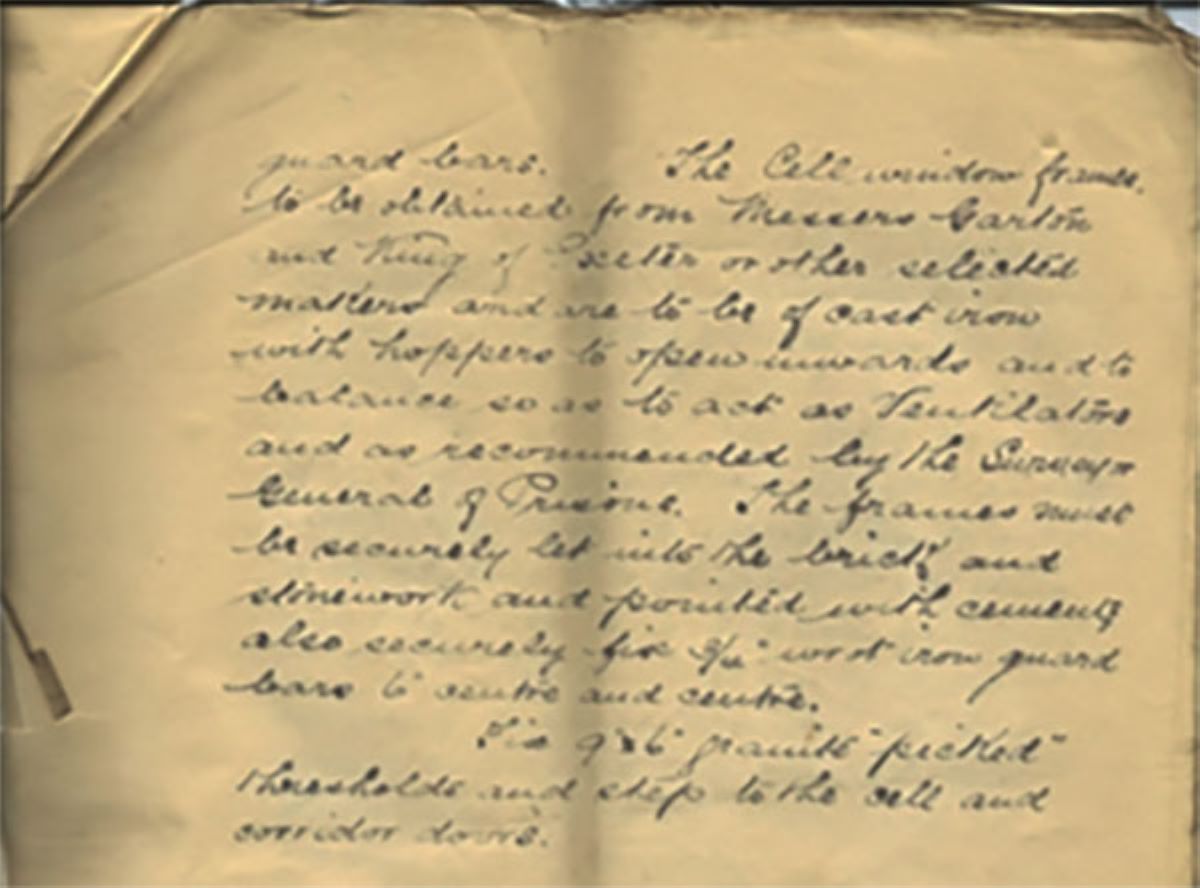 guard bars. The Cell window frames
to be obtained from Messers Garton
and King of Exeter or other selected
makers and are to be of cast iron
with hoppers to open inwards and to
balance so as to act as Ventilators
and as recommended by the Surveyor
General of Prisons. The frames must
be securely let into the brick and
stonework and pointed with cement
also securely fix 3/4" wrot iron guard
bars 6" centre and centre.
Fix 9"x6" granite "picked"
thresholds and step to the cell and
corridor doors.